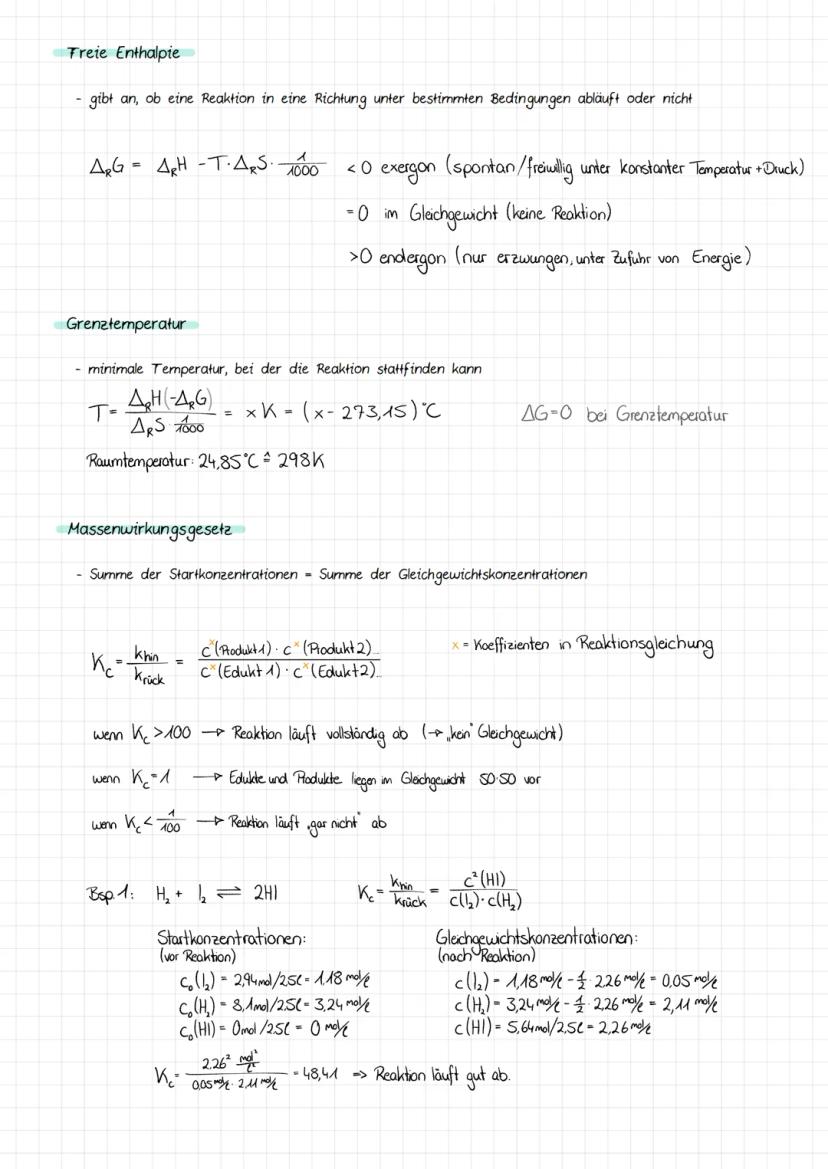 Freie Enthalpie
- gibt an, ob eine Reaktion in eine Richtung unter bestimmten Bedingungen abläuft oder nicht
ΔRG = ΔRH - T·ΔRS · 1/1000 <0 exergon (spontan/freiwillig unter konstanter Temperatur + Druck)
=0 im Gleichgewicht (keine Reaktion)
>0 endergon (nur erzwungen, unter Zufuhr von Energie)
Grenztemperatur
- minimale Temperatur, bei der die Reaktion stattfinden kann
T = ΔRH(-ΔRG) / ΔRS · 1/1000 = x K = (x - 273,15)°C ΔG=0 bei Grenztemperatur
Raumtemperatur: 24,85°C ≙ 298K
Massenwirkungsgesetz
- Summe der Startkonzentrationen = Summe der Gleichgewichtskonzentrationen
Kc = khin / krück = cˣ(Produkt 1) · cˣ(Produkt 2)... / cˣ(Edukt 1) · cˣ(Edukt 2)... x = Koeffizienten in Reaktionsgleichung
wenn Kc >100 → Reaktion läuft vollständig ab (→ „kein" Gleichgewicht)
wenn Kc = 1 → Edukte und Produkte liegen im Gleichgewicht 50:50 vor
wenn Kc < 1/100 → Reaktion läuft „gar nicht" ab
Bsp. 1: H₂ + I₂ ⇌ 2HI Kc = khin / krück = c²(HI) / c(I₂) · c(H₂)
Startkonzentrationen: Gleichgewichtskonzentrationen:
(vor Reaktion) (nach Reaktion)
c₀(I₂) = 2,94mol/2,5l = 1,18 mol/l c(I₂) = 1,18 mol/l - 1/2 · 2,26 mol/l = 0,05 mol/l
c₀(H₂) = 8,1mol/2,5l = 3,24 mol/l c(H₂) = 3,24 mol/l - 1/2 · 2,26 mol/l = 2,11 mol/l
c₀(HI) = 0mol/2,5l = 0 mol/l c(HI) = 5,64mol/2,5l = 2,26 mol/l
Kc = 2,26² mol²/l² / 0,05 mol/l · 2,11 mol/l = 48,41 ⇒ Reaktion läuft gut ab.